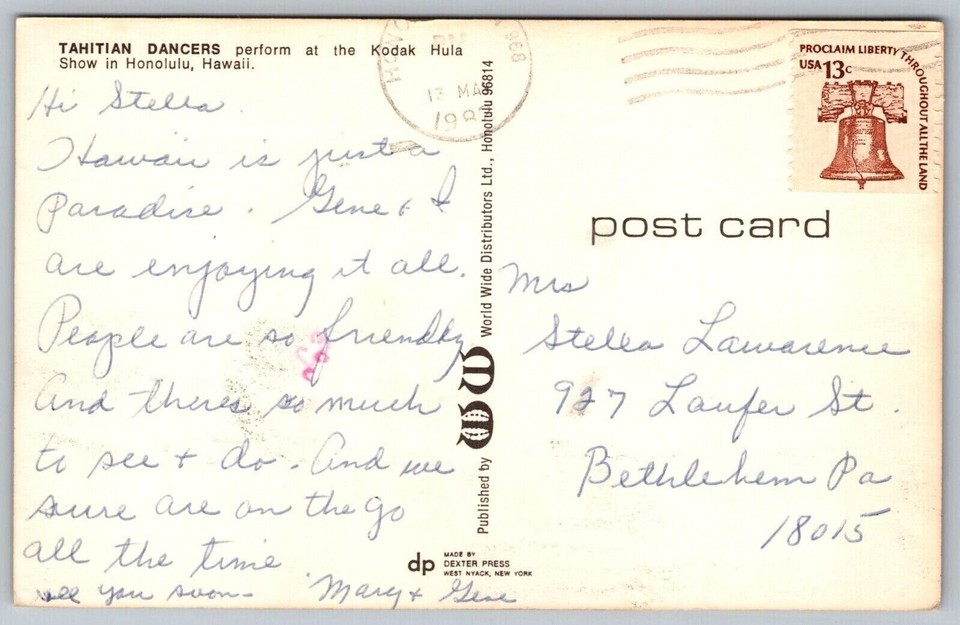 TAHITIAN DANCERS perform at the Kodak Hula
Show in Honolulu, Hawaii.
Hi Stella.
Hawaii is just a
Paradise. Gene & I
are enjoying it all.
People are so friendly
And theres so much
to see + do. And we
sure are on the go
all the time
see you soon-
Mary + Gene
Published by WW World Wide Distributors Ltd., Honolulu 96814
dp
MADE BY
DEXTER PRESS
WEST NYACK, NEW YORK
PM
13 MAR
PROCLAIM LIBERTY THROUGHOUT ALL THE LAND
USA 13c
post card
Mrs
Stella Lawarence
927 Laufer St.
Bethlehem Pa
18015